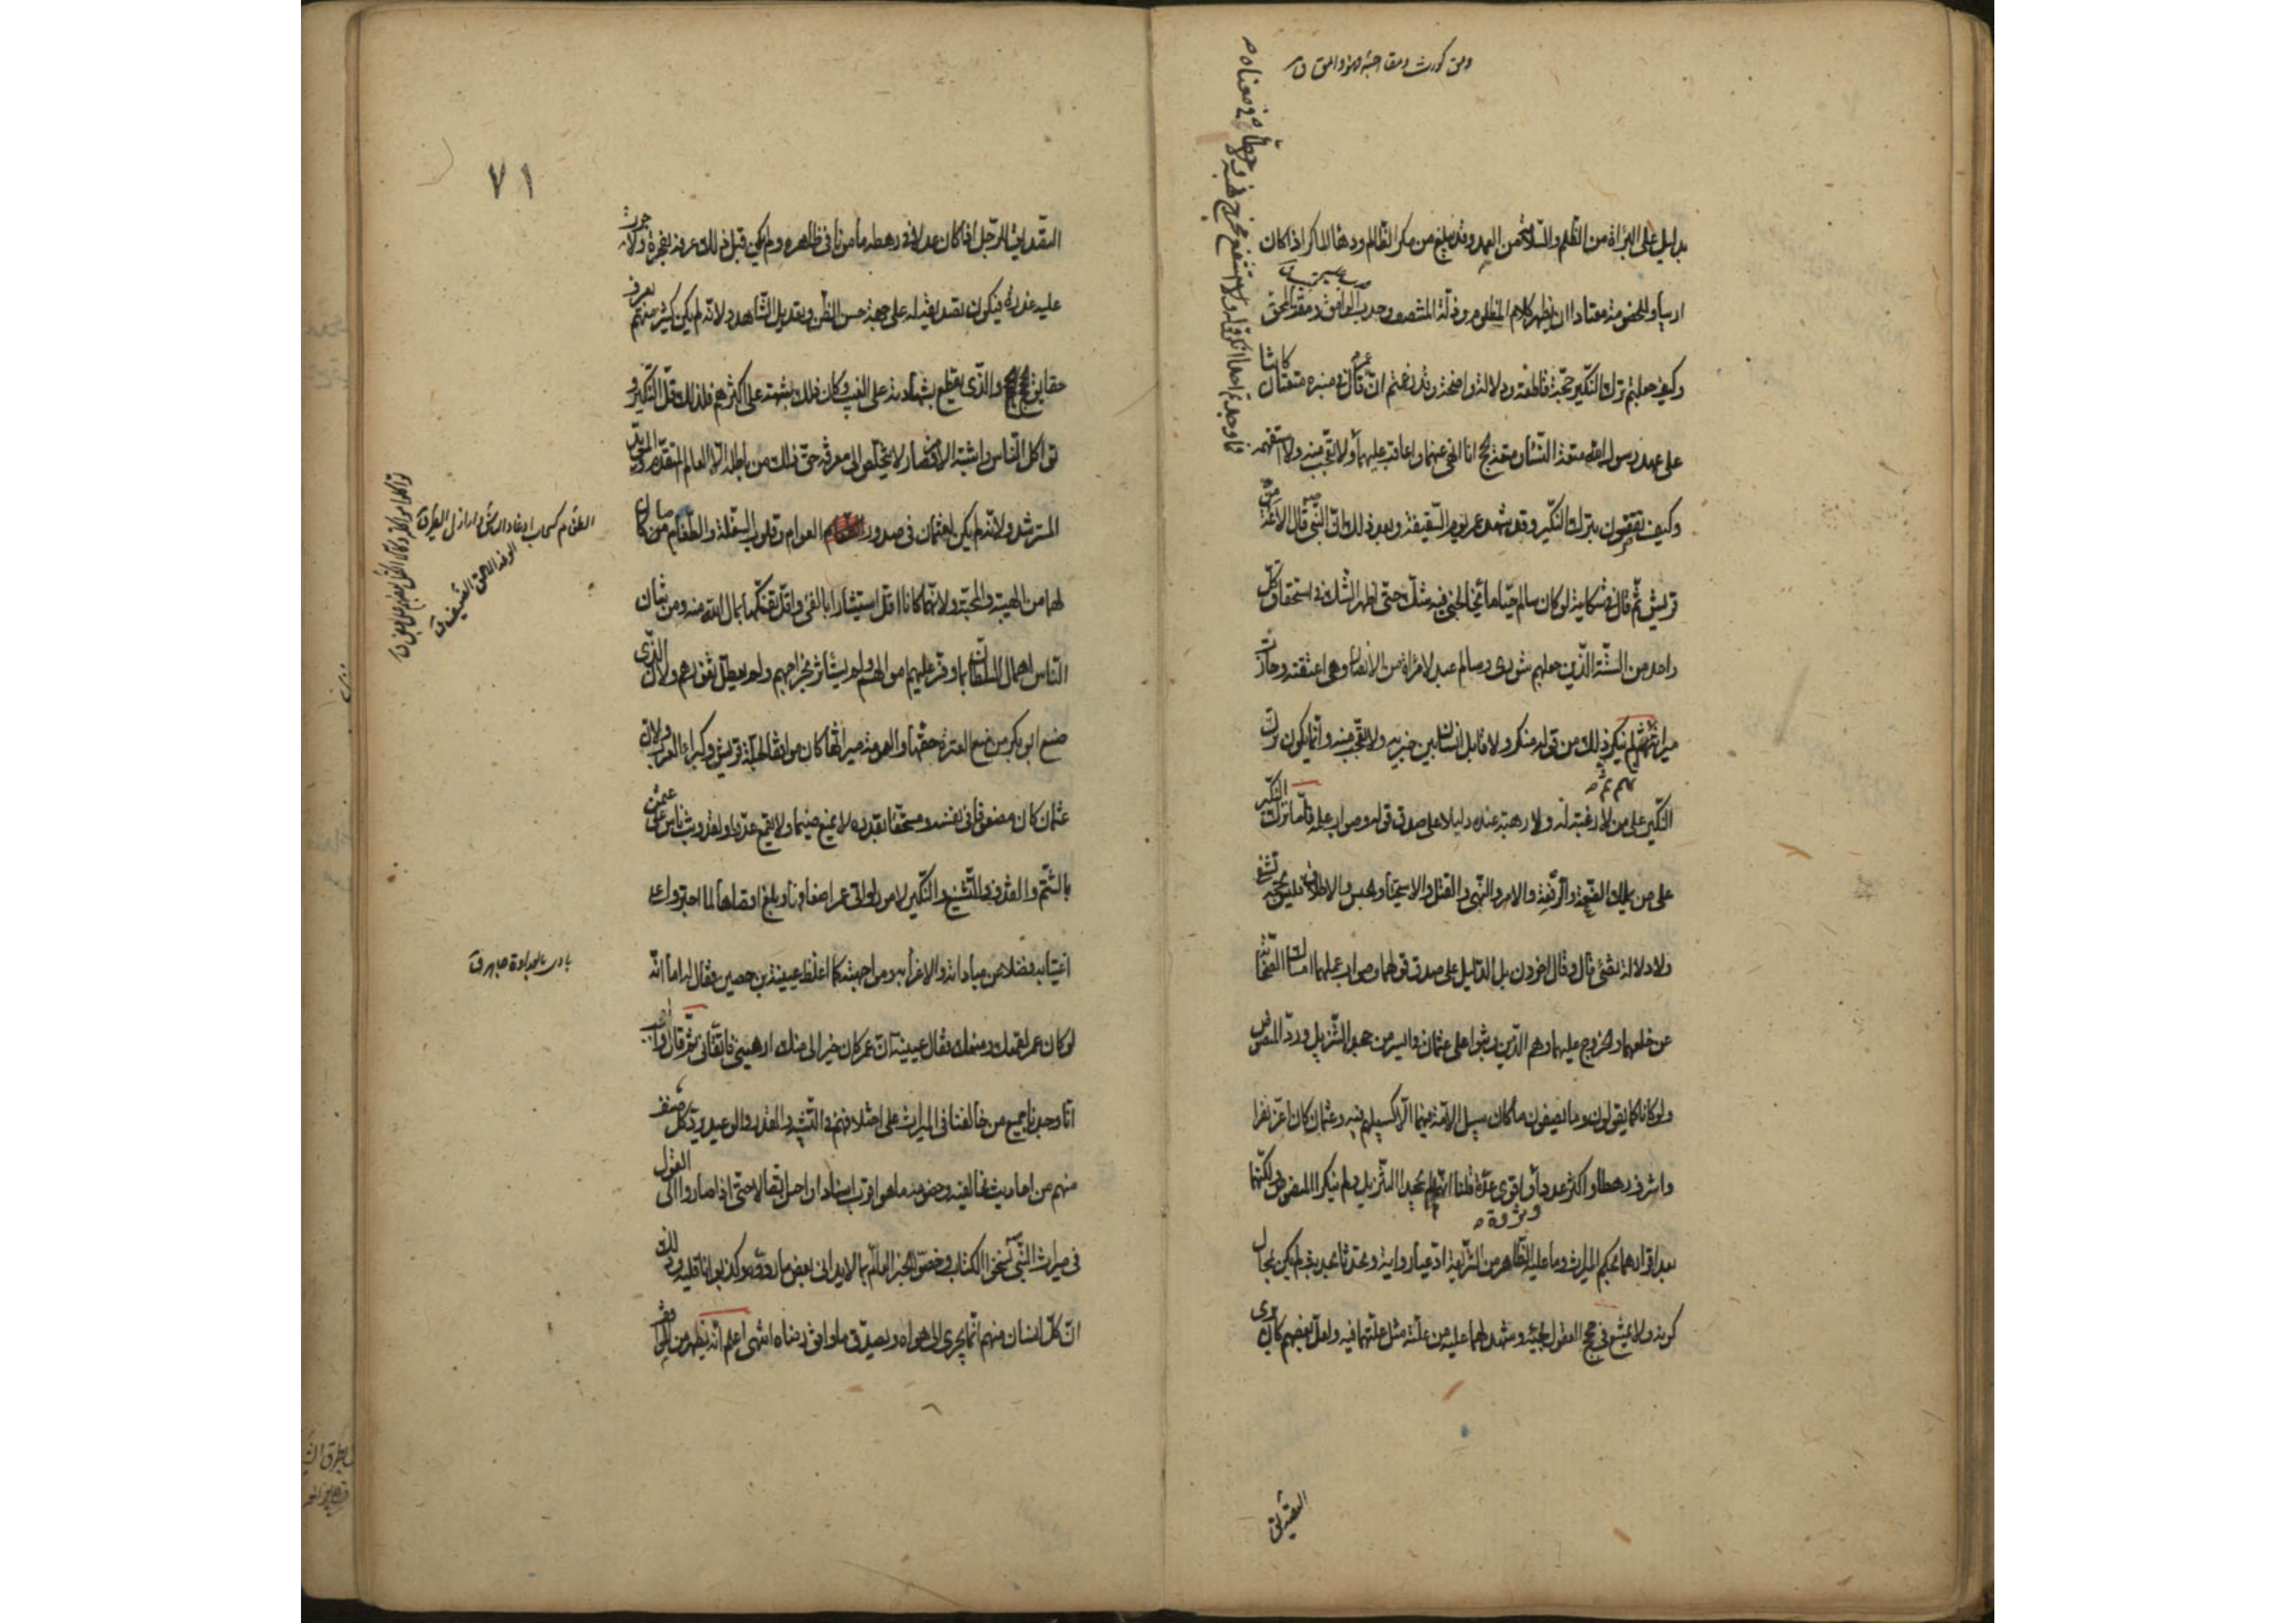 ومق كورث ومقا حبّه فهو وامق ق
بدليل على البراءة من الظلم والسلامة من العمد وقد يبلغ من مكر الظالم ودهاء الماكر اذا كان
اريبا وللخصومة معتادا ان يظهر كلام المظلوم وذلّة المنتصف وحدب الوامق ومقة المحق
وكيف جعلتم ترك النكير حجّة قاطعة ودلالة واضحة وقد زعمتم انّ عمر قال في منبره متعتان كانتا
على عهد رسول الله متعة النساء ومتعة الحج انا انهى عنهما واعاقب عليهما ولا تعجّب منه ولا استفهمه
وكيف تقضون بترك النكير وقد شهد عمر يوم السقيفة وبعد ذلك انّ النبي قال الائمة من
قريش ثم قال في شكايته لو كان سالم حيّا ما تخالجني فيه شكّ حتى اظهر الشك في استحقاق كلّ
واحد من الستّة الذين جعلهم شورى وسالم عبد لامرأة من الأنصار وهي اعتقته وحازت
ميراثه ثم لم ينكر ذلك من قوله منكر ولا قابل انسان بين خبريه ولا تعجّب منه وانما يكون ترك
النكير على من لا رغبة له ولا رهبة عنده دليلا على صدق قوله وصواب عمله فامّا ترك النكير
على من يملك الضعة والرفعة والامر والنهي والقتل والاستحياء والحبس والاطلاق فليس بحجّة تشفي
ولا دلالة تضيء قال وقال آخرون بل الدليل على صدق قولهما وصواب عملهما امساك الصحابة
عن خلعهما والخروج عليهما وهم الذين وثبوا على عثمان في ايسر من جحد التنزيل وردّ المنصوص
ولو كانا كما يقولون وما يصفون ما كان سبيل الامة فيهما الّا كسبيلهم فيه وعثمان كان اعزّ نفرا
واشرف رهطا واكثر عددا وثروة واقوى عدّة قلنا انهما لم يجحدا التنزيل ولم ينكرا المنصوص ولكنهما
بعد اقرارهما بحكم الميراث وما عليه الظاهر من الشريعة ادعيا رواية وتحدّثا بحديث لم يكن بمحال
كونه ولا يمتنع في حجج العقول مجيئه وشهد لهما عليه من علّته مثل علّتهما فيه ولعلّ بعضهم كان يرى
التصديق
٧١
التصديق للرجل اذا كان عدلا في رهطه مأمونا في ظاهره ولم يكن قبل ذلك عرفه بفجرة ولا جرت
عليه غدرة فيكون تصديقه له على جهة حسن الظن وتعديل الشاهد ولانه لم يكن كثير منهم يعرف
حقايق الحجج والذي يقطع بشهادته على الغيب وكان ذلك شبهة على اكثرهم فلذلك قلّ النكير و
تواكل الناس واشتبه الامر فصار لا يتخلّص الى معرفة حق ذلك من باطله الا العالم المتقدم والمؤيد
المسترشد ولانه لم يكن لعثمان في صدور العوام وقلوب السفلة والطغام ما كان
لهما من الهيبة والمحبة ولانهما كانا اقلّ استيثارا بالفيء واقلّ تفكّها بمال الله منه ومن شان
الناس اهمال السلطان ما وفّر عليهم اموالهم ولم يستأثر بخراجهم ولم يعطّل ثغورهم ولان الذي
صنع ابو بكر من منع العترة حقّها والعمومة ميراثها كان موافقا لجلّة قريش وكبراء العرب ولان
عثمان كان مضعوفا في نفسه ومستخفا بقدره لا يمنع ضيما ولا يقمع عدوا ولقد وثب ناس على عثمان
بالشتم والقذف والتشنيع والنكير لامور لو اتى عمر اضعافها وبلغ اقصاها لما اجترؤا على
اغتيابه فضلا عن مباداته والاغراء به ومواجهته كما اغلظ عيينة بن حصين فقال له اما انّه
لو كان عمر لقمعك ومنعك فقال عيينة انّ عمر كان خيرا لي منك ارهبني فاتقاني ثم قال والعجب
انّا وجدنا جميع من خالفنا في الميراث على اختلافهم في التشبيه والقدر والوعيد يردّ كلّ صنف
منهم من احاديث مخالفيه وخصومه ما هو اقرب اسنادا واحسن اتصالا حتى اذا صاروا الى القول
في ميراث النبي نسخوا الكتاب وخصّوا الخبر العامّ بما لا يداني بعض ما رووه وكذبوا ناقليه وذلك
انّ كلّ انسان منهم انما يجري الى هواه ويصدّق ما وافق رضاه انتهى اعلم انه يظهر من
بادى بالعداوة جاهر ق